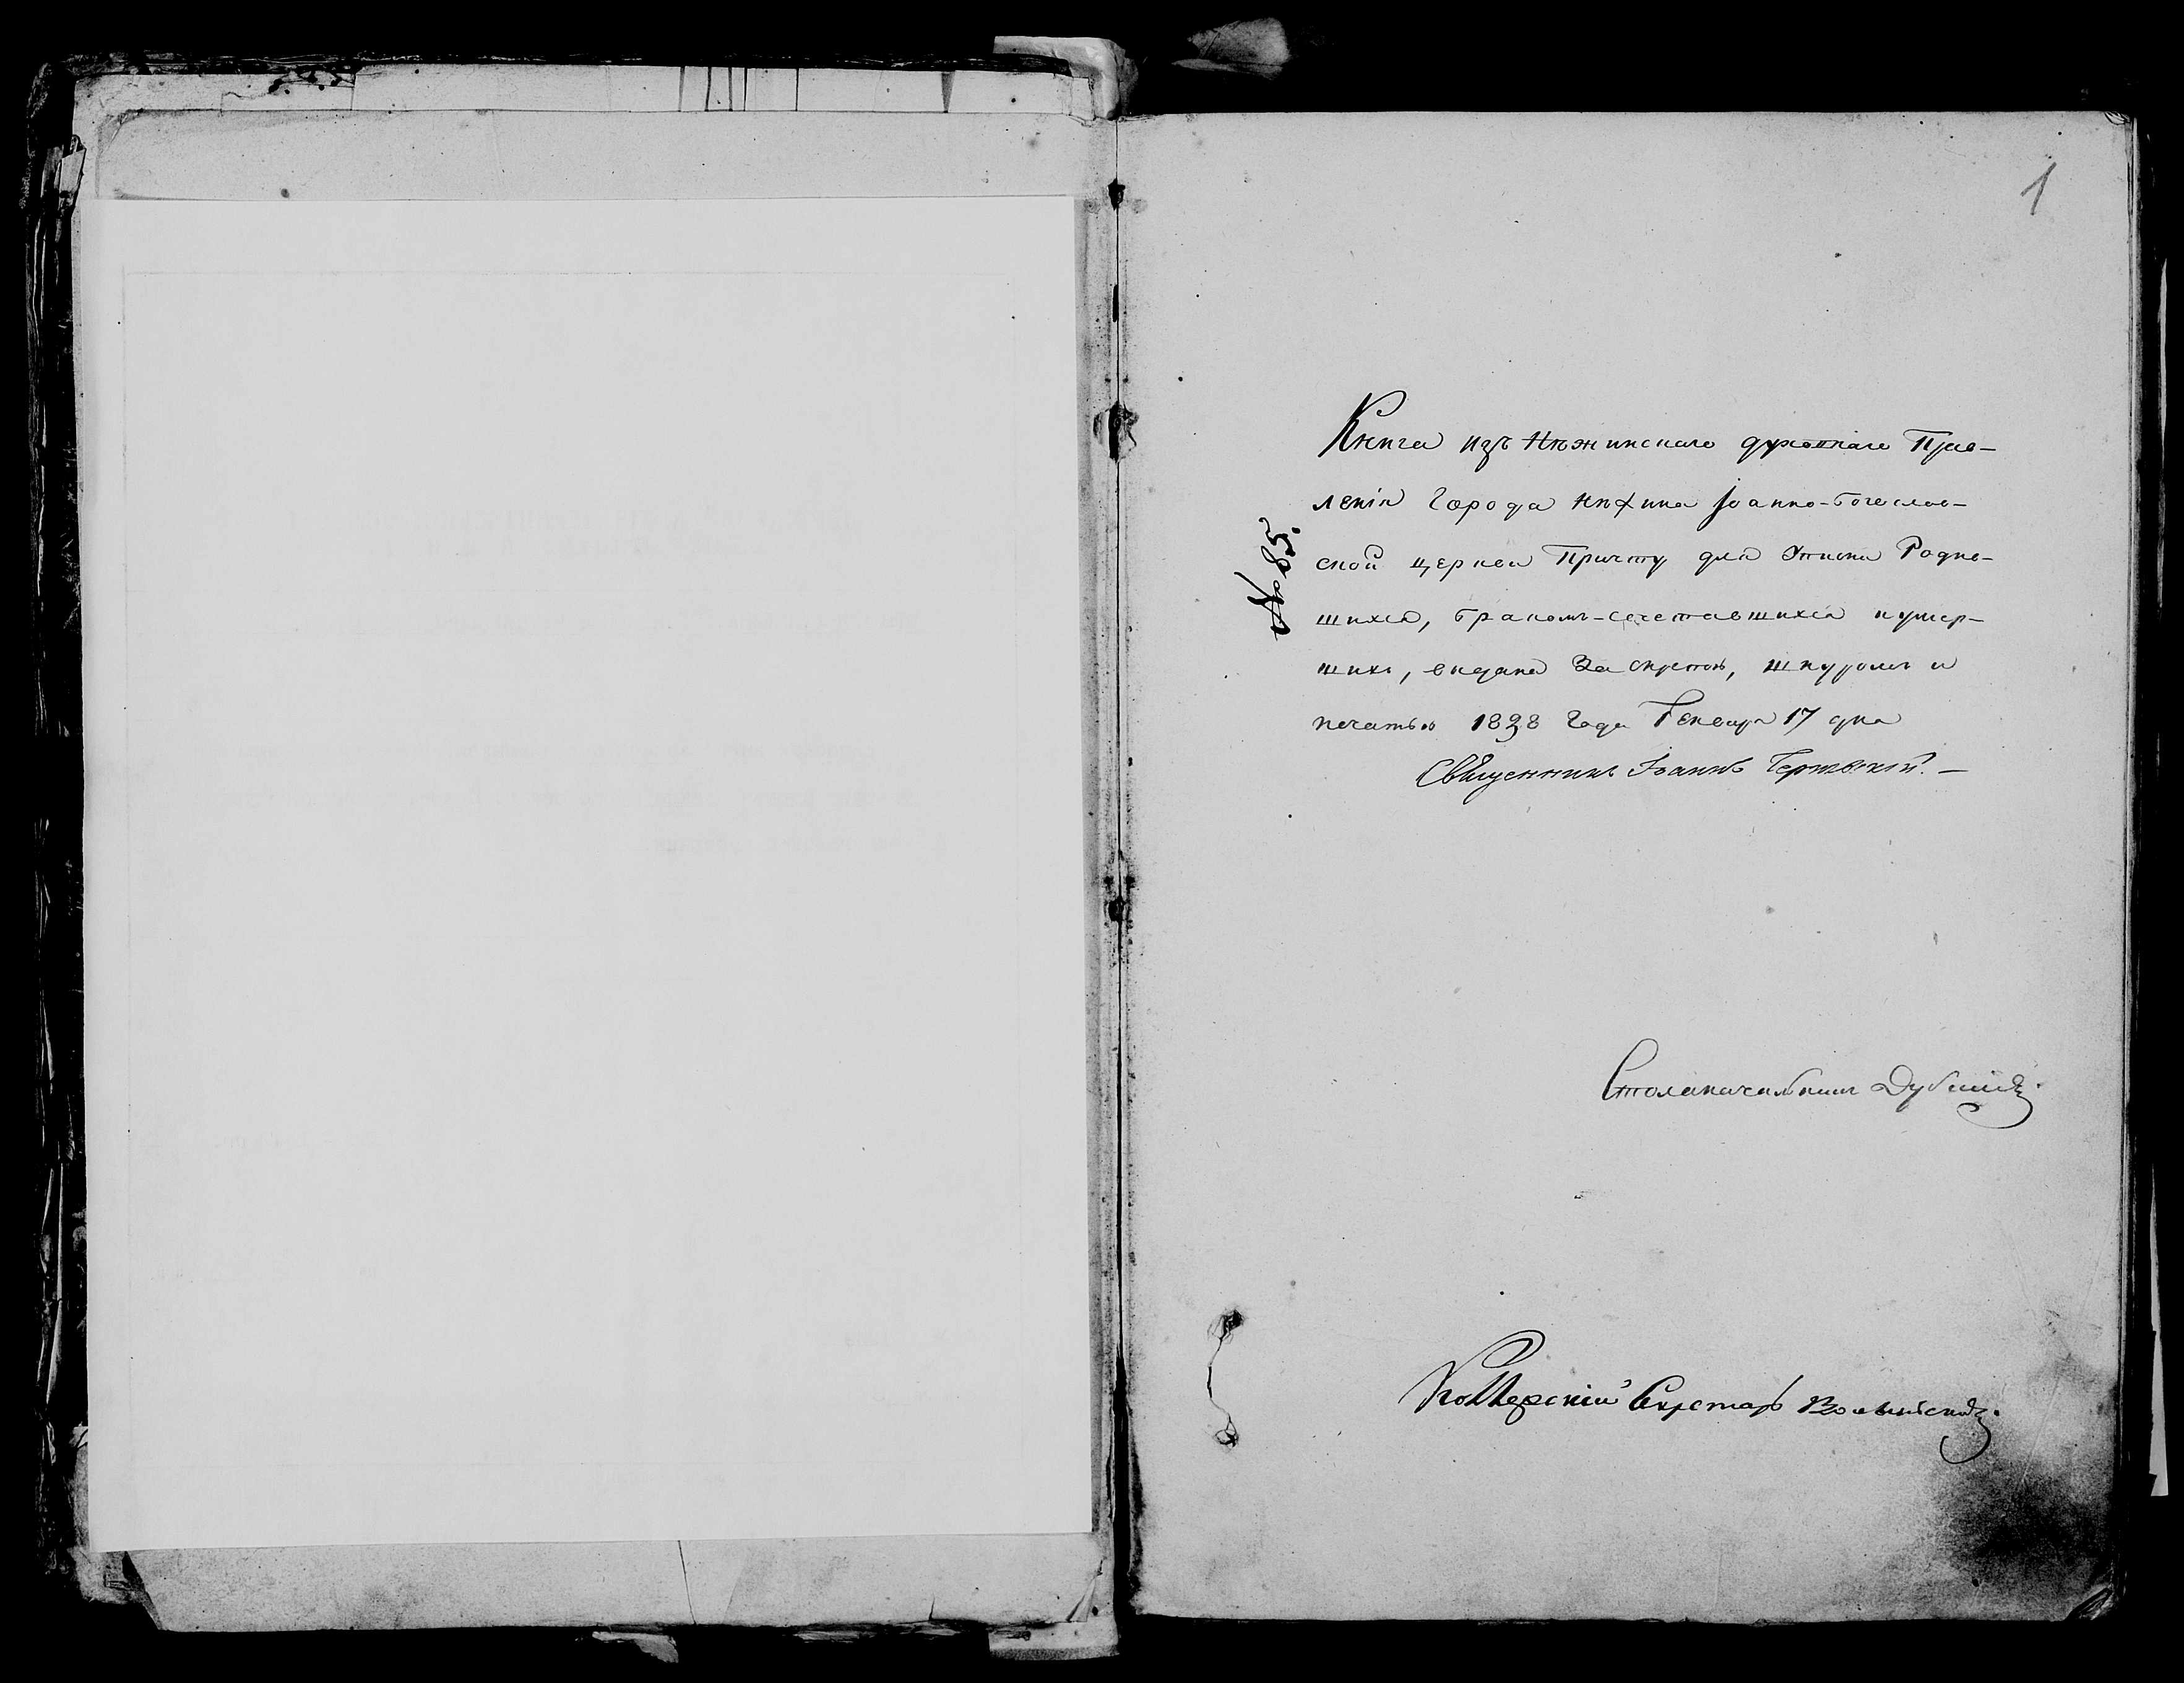 1
№ 85.
Книга изъ Нѣжинскаго духовнаго Прав-
ленія Города Нѣжина Іоанно-Богослов-
ской церкви Причту для Описи Родив-
шихся, бракомъ-сочетавшихся и умер-
шихъ, видана За скрепою, шнуромъ и
печатью 1838 Года Генваря 17 дня
Священникъ Іоаннъ
Столоначальникъ
Секретарь